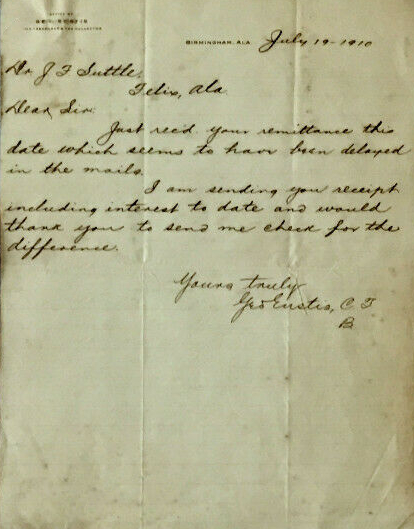 OFFICE OF
BIRMINGHAM, ALA July 19-1910
Dr J F Suttle,
Felix, Ala.
Dear Sir:
Just rec'd your remittance this
date which seems to have been delayed
in the mails.
I am sending you receipt
including interest to date and would
thank you to send me check for the
difference.
Yours truly
Geo Eustis, C T
B